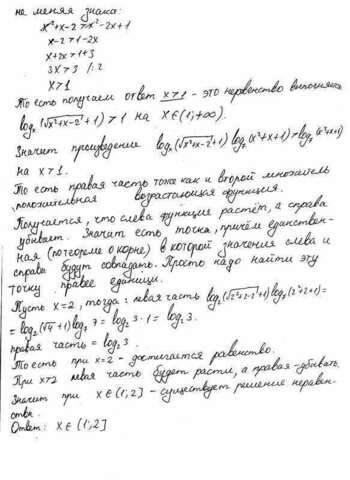 не меняя знака:
x²+x-2 > x²-2x+1
x-2 > 1-2x
x+2x > 1+3
3x > 3 /:2
x > 1
То есть получаем ответ x>1 - это неравенство выполняется
log (√(x²+x-2)+1) > 1 на x∈(1;+∞).
Значит произведение log (√(x²+x-2)+1) log (x²+x+1) > log (x²+x+1)
на x>1.
То есть правая часть тоже как и второй множитель
положительная возрастающая функция.
Получается, что слева функция растёт, а справа
убывает. Значит есть точка, причём единствен-
ная (по теореме о корне) в которой значения слева и
справа будут совпадать. Просто надо найти эту
точку правее единицы.
Пусть x=2, тогда: левая часть log₂(√(2²+2-2)+1) log (2²+2+1)=
= log₂(√4+1) log₇ 7 = log₂3·1 = log₂3.
правая часть = log₂3.
То есть при x=2 - достигается равенство.
При x>2 левая часть будет расти, а правая - убывать.
Значит при x∈(1;2] - существует решение неравен-
ства.
Ответ: x∈(1;2]